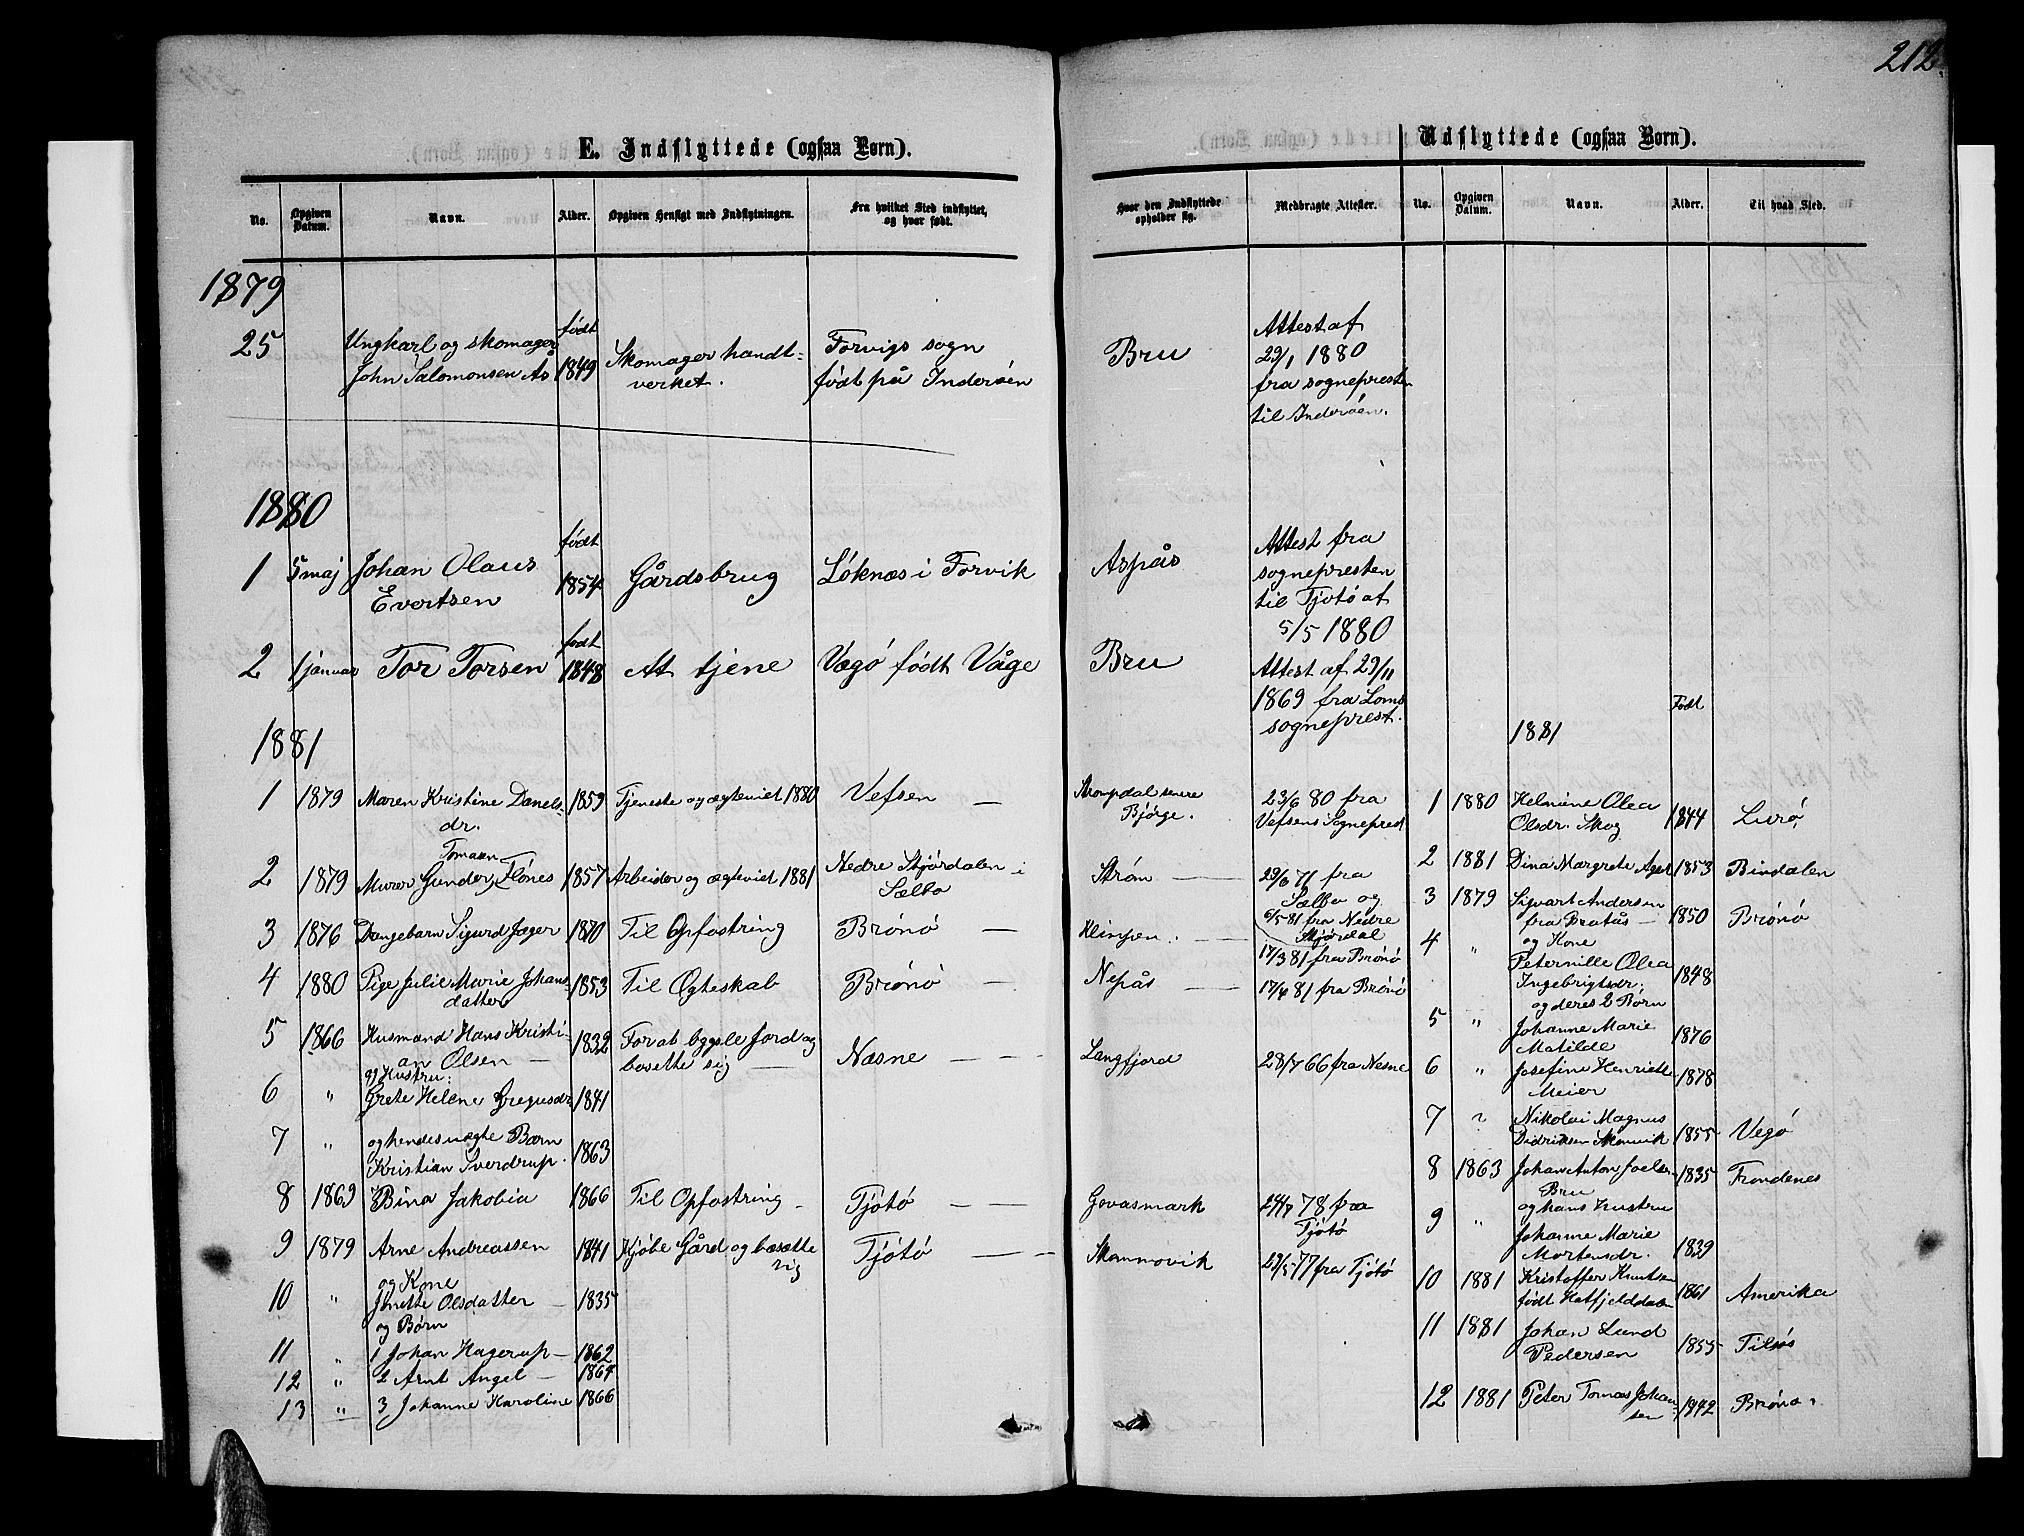 212
E. Indflyttede (ogsaa Børn).
No. Opgiven Datum. Navn. Alder. Opgiven Hensigt med Indflytningen. Fra hvilket Sted indflyttet, og hvor født.
1879
25 Ungkarl og skomager født Skomager handt- Forvigs sogn
John Salomonsen Ås 1849 verket. født på Inderøen
1880
1 5 maj Johan Olaus født Gårdsbrug Løknæs i Forvik
Evertsen 1854
2 1 januar Tor Torsen født 1848 At tjene Vægø født Våge
1881
1 1879 Maren Kristine Danels- 1859 Tjeneste og ægteviet 1880 Vefsen —
dr.
Tomasn
2 1879 Murer Gunder Flønes 1857 Arbeider og ægteviet 1881 Nedre Stjørdalen i
Sælbo
3 1876 Dængebarn Sigurd Jæger 1870 Til Opfostring Brønø —
4 1880 Pige Julie Marie Johans- 1853 Til Ægteskab Brønø —
datter
5 1866 Husmand Hans Kristi- 1832 For at bygsle Jord og Næsne — —
an Olsen — bosette sig —
og Hustru:
6 " Grete Helene Gregusdr 1841
7 " og hendes uægte Barn
Kristian Sverdrup. 1863
8 1869 Bina Jakobia 1866 Til Opfostring – Tjøtø — —
9 1879 Arne Andreassen 1841 Kjøbe Gård og bosætte Tjøtø — —
sig
og Kone
10 " Jonette Olsdatter — 1835
og Børn
11 " 1 Johan Hagerup — 1862
12 " 2 Arnt Angel — 1864
13 " 3 Johanne Karoline 1866
Hvor den Indflyttede opholder sig. Medbragte Attester.
Bru Attest af
29/1 1880
fra sognepresten
til Inderøen.
Aspås Attest fra
sognepresten
til Tjøtø af
5/5 1880
Bru Attest af 29/11
1869 fra Loms
sogneprest.
senere 23/6 80 fra
Bjørge. Vefsens Sogneprest
Strøm — 29/6 71 fra
Sælbo og
6/5 81 fra Nedre
Stjørdal
Klimpen. — 17/3 81 fra Brønø
Nepås — 17/6 81 fra Brønø
Langfjord 28/7 66 fra Nesne
Govasmark 78 fra
Tjøtø
77 fra Tjøtø
Udflyttede (ogsaa Børn).
No. Opgiven Datum. Navn. Alder. Til hvad Sted.
Født
1881
1 1880 Helmine Olea
Olsdr. Skog 1844 Lurø
2 1881 Dina Margrete 1853 Bindalen
3 1879 Sigvart Andersen
fra Bratås — 1850 Brønø
4 " og Kone
Peternille Olea
Ingebrigtsdr. 1848
og deres 2 Børn
5 " Johanne Marie
Matilde 1876
6 " Josefine Henriette
Meier 1878
7 " Nikolai Magnus
Didriksen 1855 Vegø
8 1863 Johan Anton Joelsen 1835 Trondenes
Bru
9 " og hans Hustru
Johanne Marie
Mortensdr. 1839
10 1881 Kristoffer Knutsen
født Hatfjelddalen 1861 Amerika
11 1881 Johan Lund
Pedersen 1855 Tilrøs
12 1881 Peter Tomas Johan-
sen 1842 Brønø.